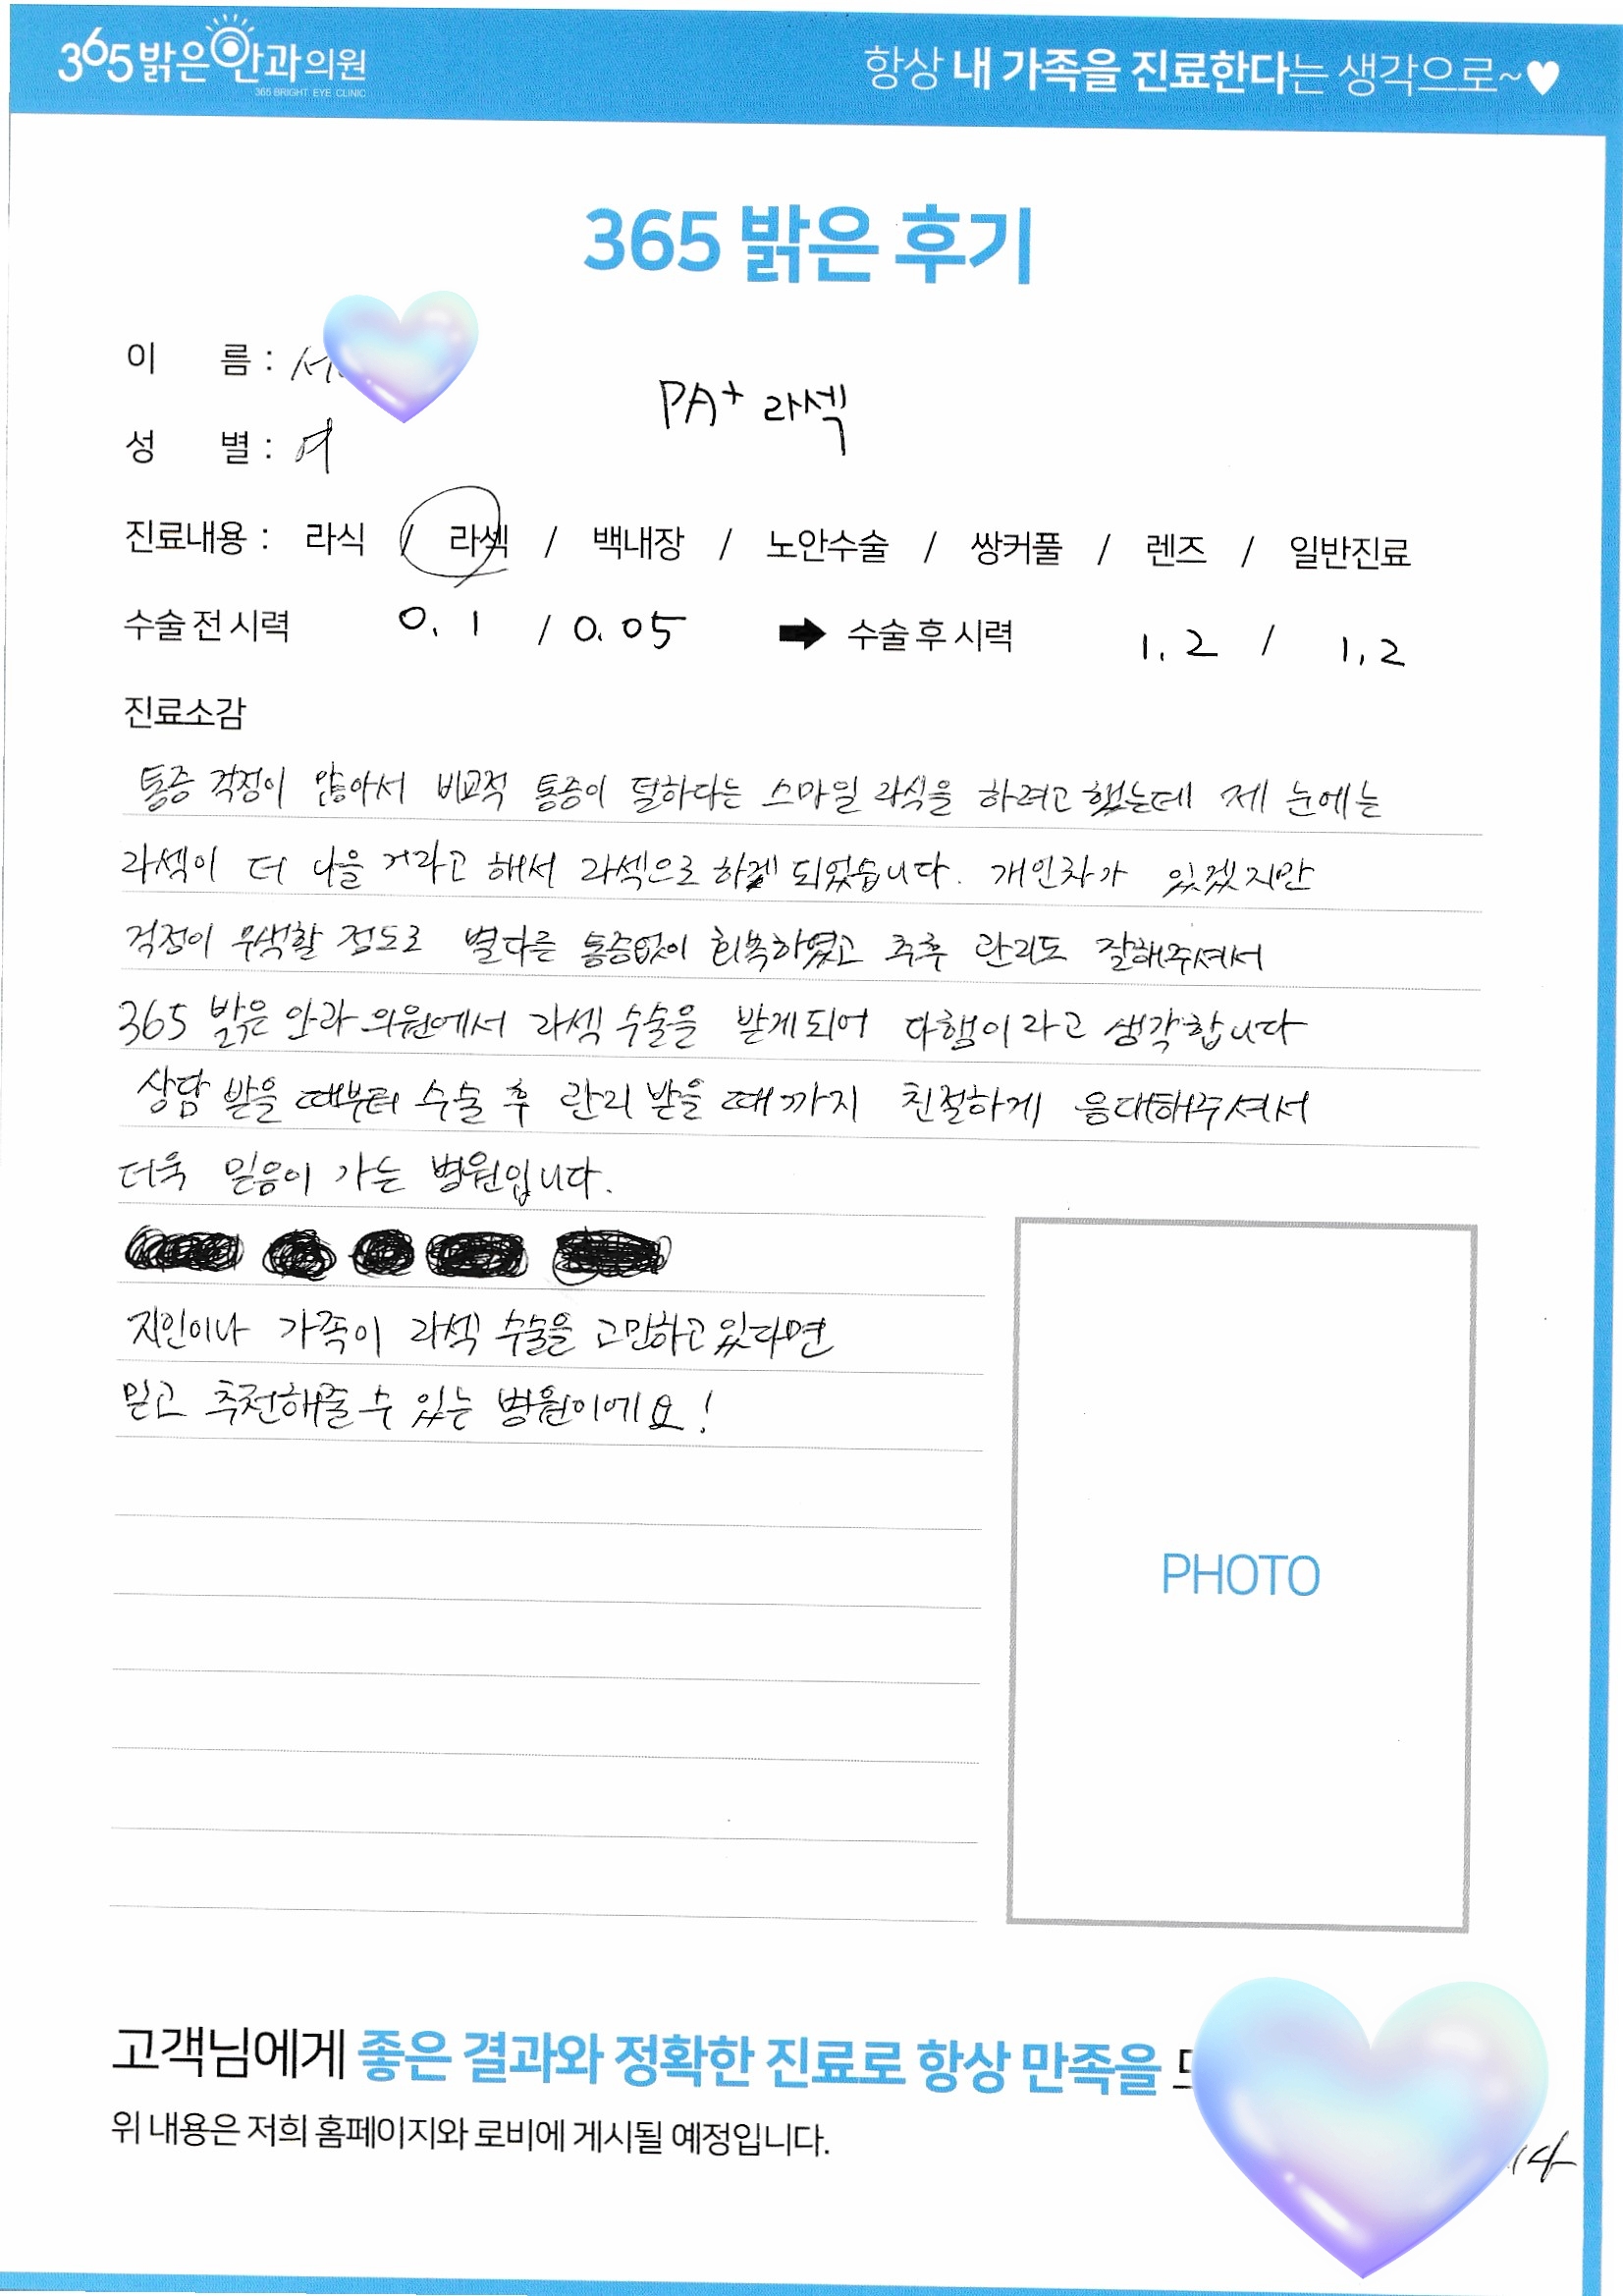 365밝은안과의원
365 BRIGHT EYE CLINIC
항상 내 가족을 진료한다는 생각으로~♥
365 밝은 후기
이 름 :
PA+ 라섹
성 별 : 여
진료내용 : 라식 / 라섹 / 백내장 / 노안수술 / 쌍커풀 / 렌즈 / 일반진료
수술 전 시력 0.1 / 0.05 ➡ 수술 후 시력 1.2 / 1.2
진료소감
통증 걱정이 많아서 비교적 통증이 덜하다는 스마일 라식을 하려고 했는데 제 눈에는
라섹이 더 나을 거라고 해서 라섹으로 하게 되었습니다. 개인차가 있겠지만
걱정이 무색할 정도로 별다른 통증없이 회복하였고 추후 관리도 잘해주셔서
365 밝은 안과 의원에서 라섹 수술을 받게되어 다행이라고 생각합니다
상담 받을 때부터 수술 후 관리 받을 때까지 친절하게 응대해주셔서
더욱 믿음이 가는 병원입니다.
지인이나 가족이 라섹 수술을 고민하고 있다면
믿고 추천해줄 수 있는 병원이에요!
PHOTO
고객님에게 좋은 결과와 정확한 진료로 항상 만족을
위 내용은 저희 홈페이지와 로비에 게시될 예정입니다.
14